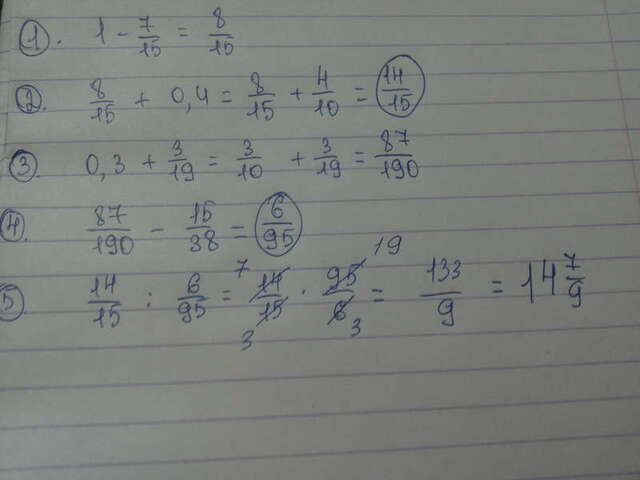 1. 1 - 7/15 = 8/15
2. 8/15 + 0,4 = 8/15 + 4/10 = 14/15
3. 0,3 + 3/19 = 3/10 + 3/19 = 87/190
4. 87/190 - 15/38 = 6/95
5. 14/15 : 6/95 = 7 14/15 3 · 95/6 19 3 = 133/9 = 14 7/9